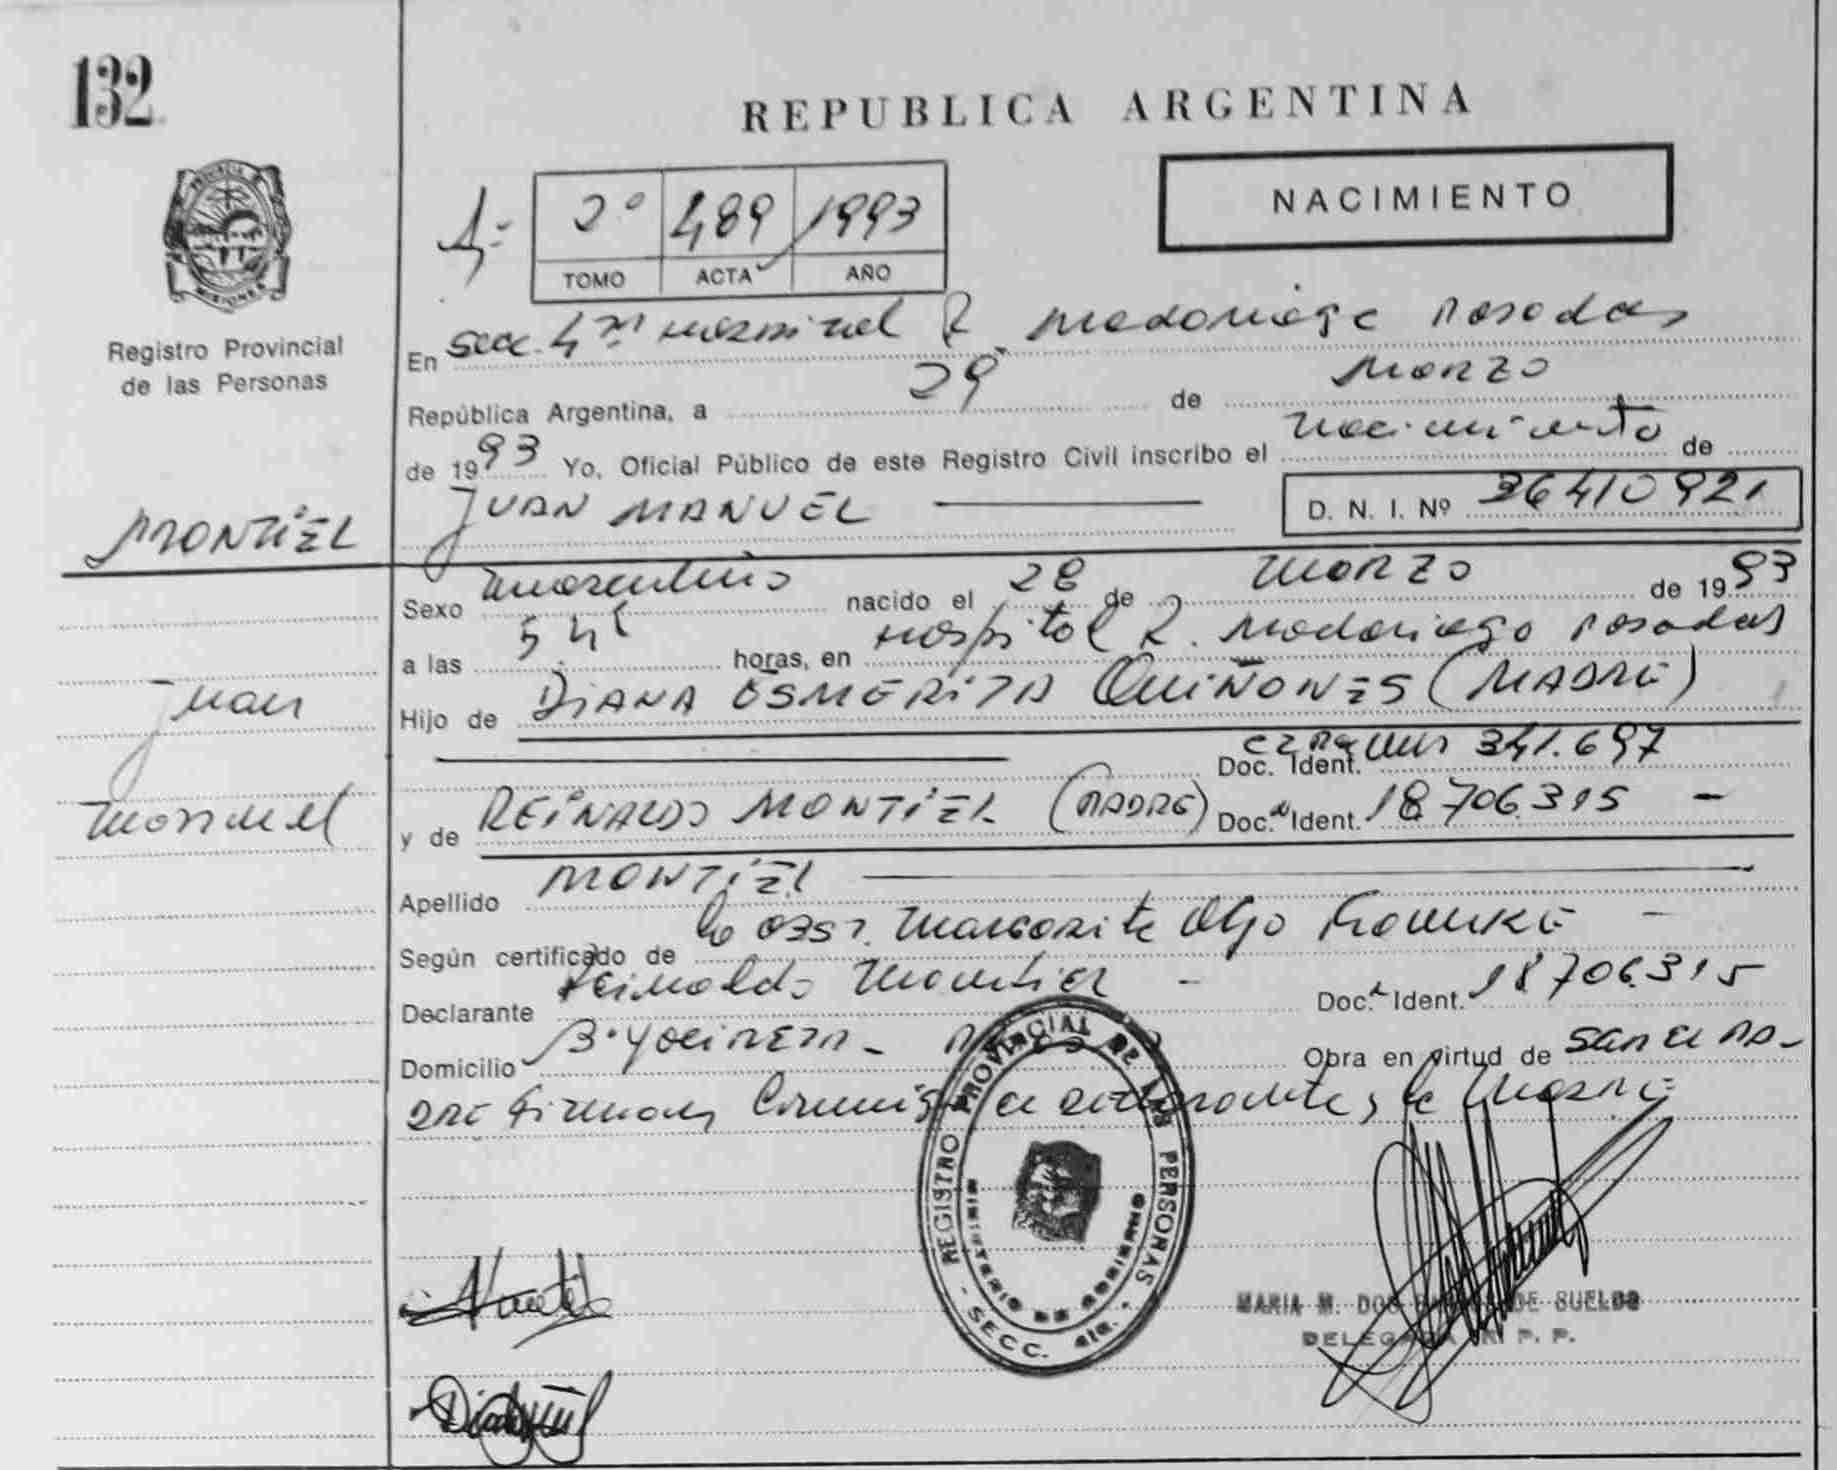 132
REPUBLICA ARGENTINA
NACIMIENTO
2º 489 1993
TOMO ACTA AÑO
PROVINCIA DE MISIONES
Registro Provincial
de las Personas
En Secc. 4ta Hospital R. Madariaga Posadas
República Argentina, a 29 de Marzo
de 1993 Yo, Oficial Público de este Registro Civil inscribo el Nacimiento de
JUAN MANUEL
D. N. I. Nº 36410921
MONTIEL
Sexo masculino nacido el 28 de Marzo de 1993
a las 5 hs horas, en Hospital R. Madariaga Posadas
Juan
Manuel
Hijo de DIANA ESMERITA QUIÑONES (MADRE)
Doc. Ident. 341.697
y de REINALDO MONTIEL (PADRE) Doc. Ident. 18706315 -
Apellido MONTIEL
Según certificado de la Obst. Margarita Olga
Declarante Reinaldo Montiel - Doc. Ident. 18706315
Domicilio Bº Obra en virtud de ser el pa-
dre firman el declarante y la Madre
REGISTRO PROVINCIAL DE LAS PERSONAS
MINISTERIO DE GOBIERNO
- SECC. 4ta. -
MARIA M. DOS DE SUELDO
DELEGADA R. P. P.